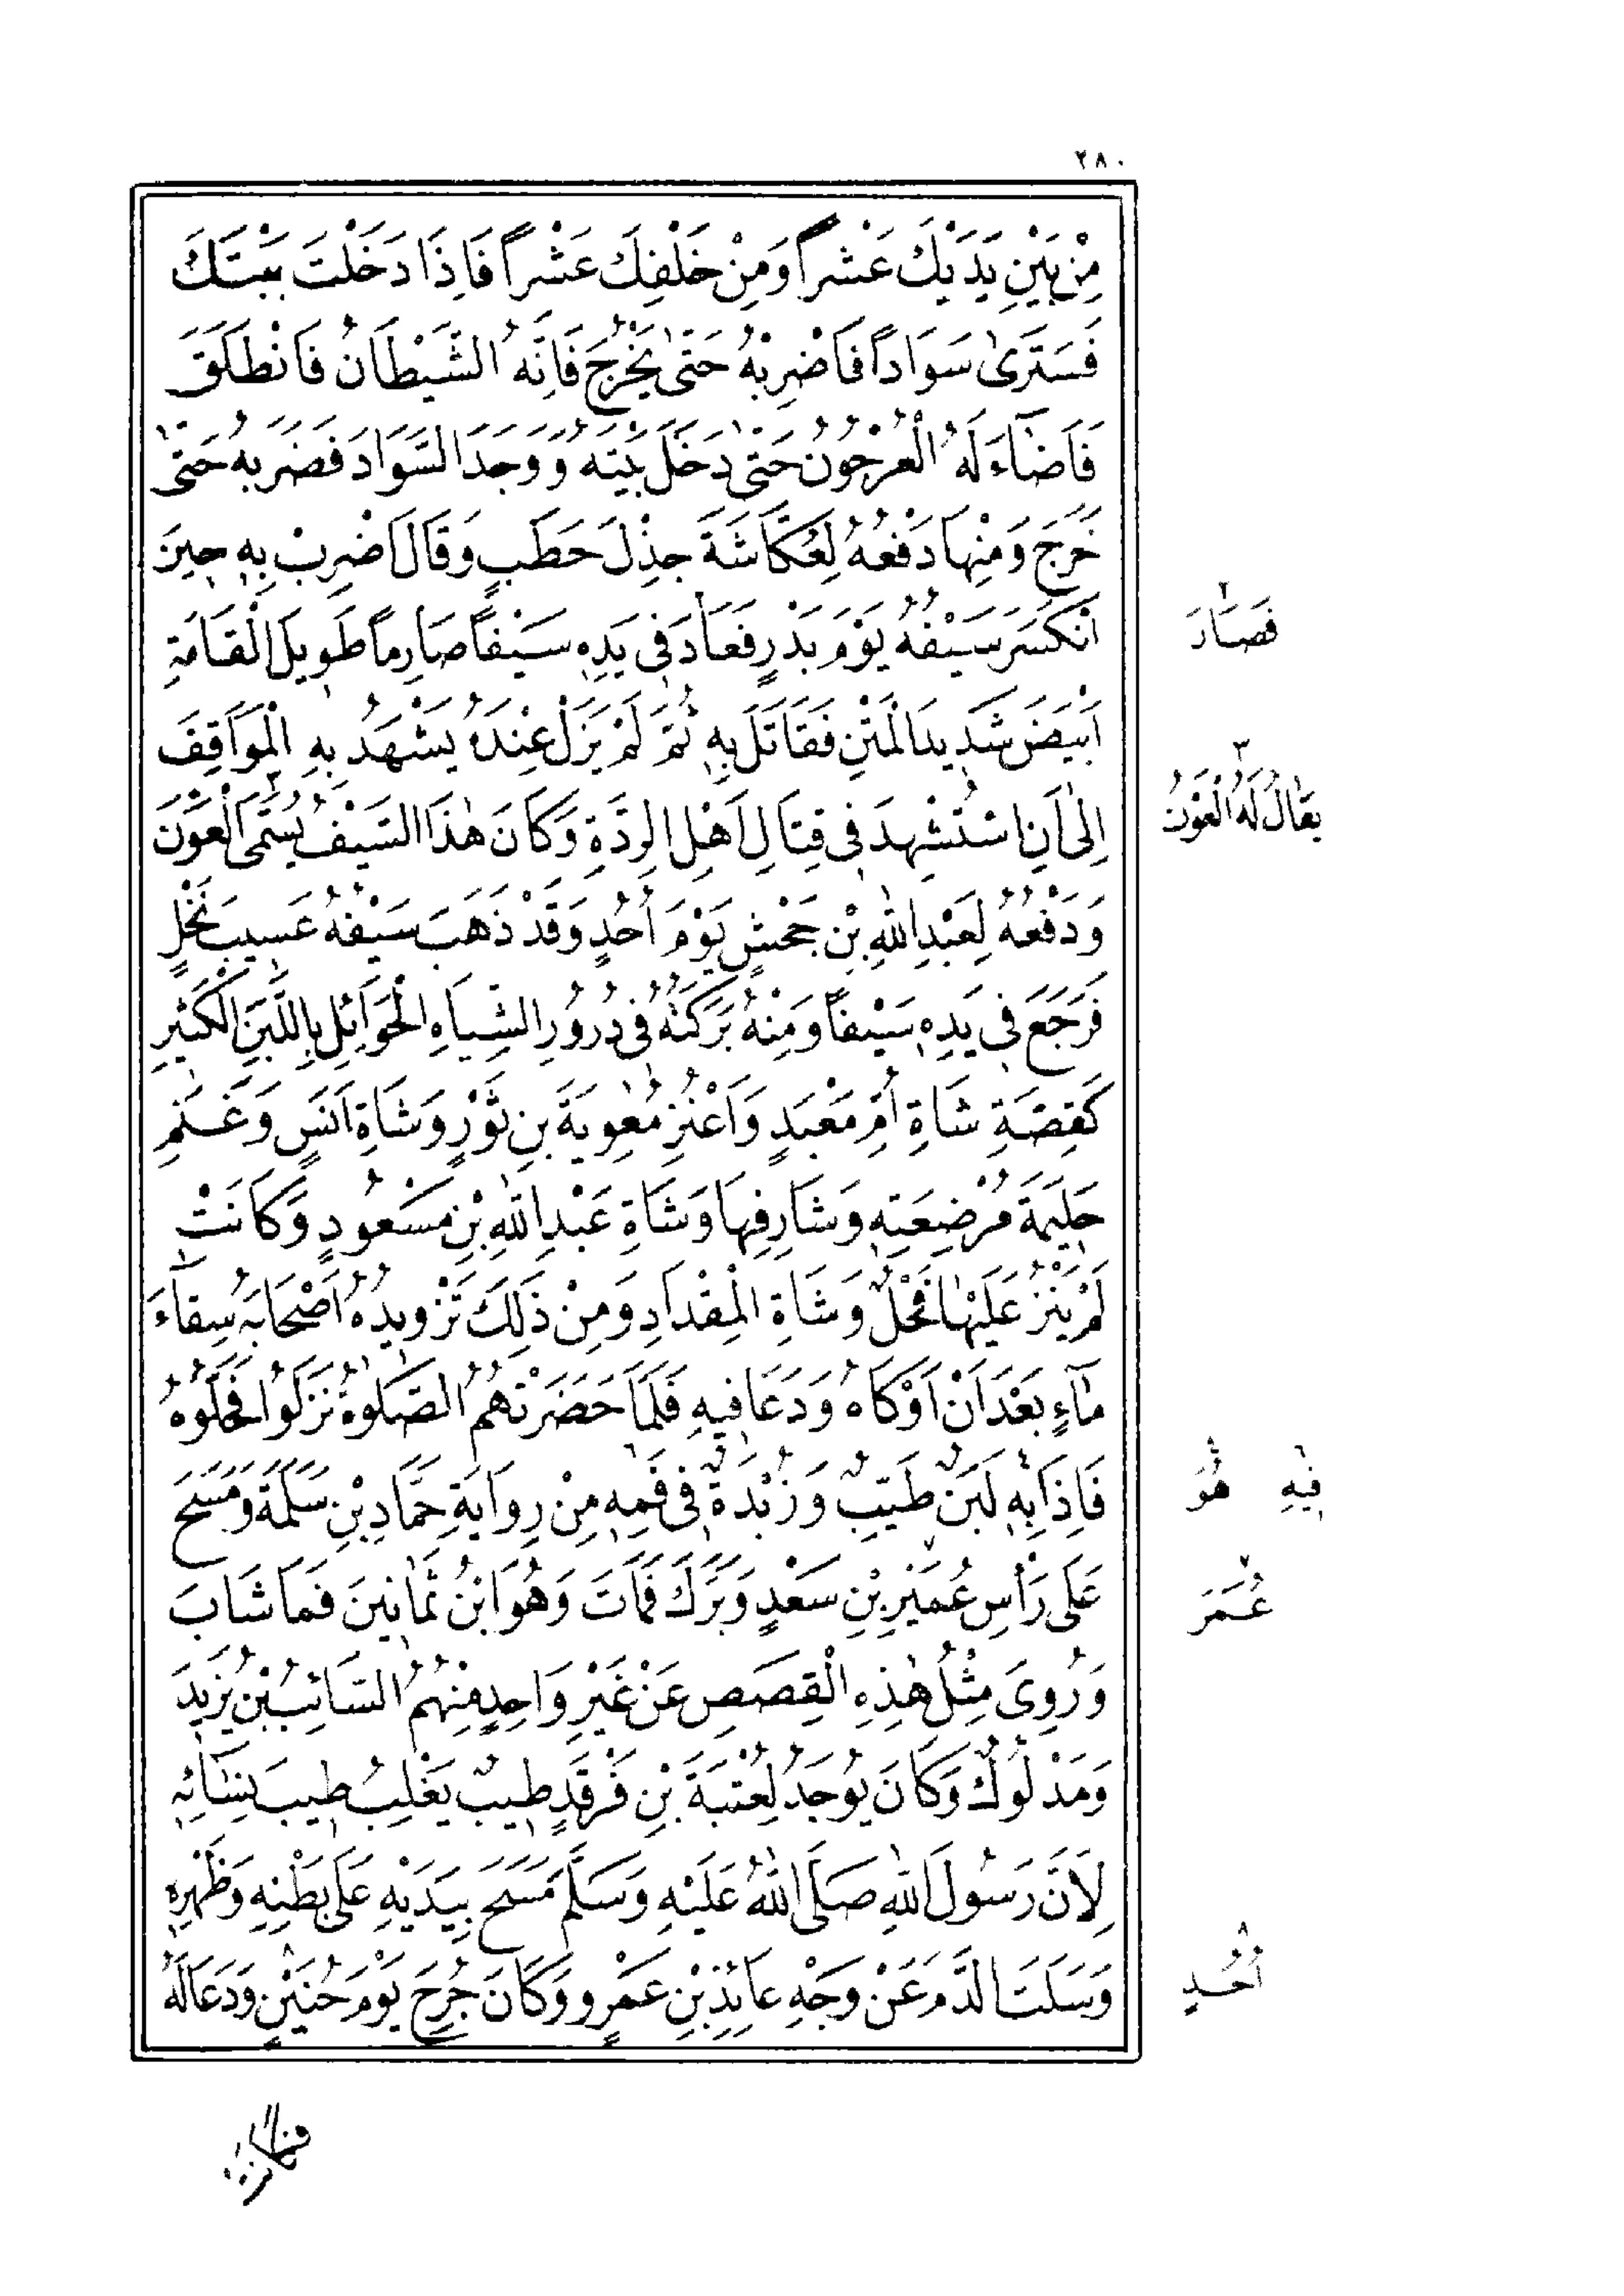 ٢٨٠
مِنْ بَيْنِ يَدَيْكَ عَشْراً وَمِنْ خَلْفِكَ عَشْراً فَاِذَا دَخَلْتَ بَيْتَكَ
فَسَتَرَىٰ سَوَاداً فَاضْرِبْهُ حَتّٰى يَخْرُجَ فَاِنَّهُ الشَّيْطَانُ فَانْطَلَقَ
فَاَضَاۤءَ لَهُ الْعُرْجُونُ حَتّٰى دَخَلَ بَيْتَهُ وَوَجَدَ السَّوَادَ فَضَرَبَهُ حَتّٰى
خَرَجَ وَمِنْهَا دَفْعُهُ لِعُكَّاشَةَ جِذْلَ حَطَبٍ وَقَالَ اضْرِبْ بِهِ حِينَ
انْكَسَرَ سَيْفُهُ يَوْمَ بَدْرٍ فَعَادَ فِى يَدِهِ سَيْفاً صَارِماً طَوِيلَ الْقَامَةِ
فَصَارَ
اَبْيَضَ شَدِيدَ الْمَتْنِ فَقَاتَلَ بِهِ ثُمَّ لَمْ يَزَلْ عِنْدَهُ يَشْهَدُ بِهِ الْمَوَاقِفَ
اِلٰى اَنِ اسْتُشْهِدَ فِى قِتَالِ اَهْلِ الرِّدَّةِ وَكَانَ هٰذَا السَّيْفُ يُسَمَّى الْعَوْنَ
يُقَالُ لَهُ الْعَوْنُ
وَدَفْعُهُ لِعَبْدِ اللّٰهِ بْنِ جَحْشٍ يَوْمَ اُحُدٍ وَقَدْ ذَهَبَ سَيْفُهُ عَسِيبَ نَخْلٍ
فَرَجَعَ فِى يَدِهِ سَيْفاً وَمِنْهُ بَرَكَتُهُ فِى دُرُورِ الشِّيَاهِ الْحَوَائِلِ بِاللَّبَنِ الْكَثِيرِ
كَقِصَّةِ شَاةِ اُمِّ مَعْبَدٍ وَاَعْنُزِ مُعٰوِيَةَ بْنِ ثَوْرٍ وَشَاةِ اَنَسٍ وَغَنَمِ
حَلِيمَةَ مُرْضِعَتِهِ وَشَارِفِهَا وَشَاةِ عَبْدِ اللّٰهِ بْنِ مَسْعُودٍ وَكَانَتْ
لَمْ يَنْزُ عَلَيْهَا فَحْلٌ وَشَاةِ الْمِقْدَادِ وَمِنْ ذَلِكَ تَزْوِيدُهُ اَصْحَابَهُ سِقَاۤءَ
مَاۤءٍ بَعْدَ اَنْ اَوْكَاهُ وَدَعَا فِيهِ فَلَمَّا حَضَرَتْهُمُ الصَّلٰوةُ نَزَلُوا فَحَلُّوهُ
فَاِذَا بِهِ لَبَنٌ طَيِّبٌ وَزُبْدَةٌ فِى فَمِهِ مِنْ رِوَايَةِ حَمَّادِ بْنِ سَلَمَةَ وَمَسَحَ
فِيهِ هُوَ
عَلَى رَأْسِ عُمَيْرِ بْنِ سَعْدٍ وَبَرَّكَ فَمَاتَ وَهُوَ ابْنُ ثَمَانِينَ فَمَا شَابَ
عُمَرَ
وَرُوِىَ مِثْلُ هٰذِهِ الْقِصَصِ عَنْ غَيْرِ وَاحِدٍ مِنْهُمُ السَّائِبُ بْنُ يَزِيدَ
وَمَدْلُوكٌ وَكَانَ يُوجَدُ لِعُتْبَةَ بْنِ فَرْقَدٍ طِيبٌ يَغْلِبُ طِيبَ نِسَائِهِ
لِاَنَّ رَسُولَ اللّٰهِ صَلَّى اللّٰهُ عَلَيْهِ وَسَلَّمَ مَسَحَ بِيَدَيْهِ عَلَى بَطْنِهِ وَظَهْرِهِ
وَسَلَتَ الدَّمَ عَنْ وَجْهِ عَائِذِ بْنِ عَمْرٍو وَكَانَ جُرِحَ يَوْمَ حُنَيْنٍ وَدَعَا لَهُ
اُحُدٍ
فكانت